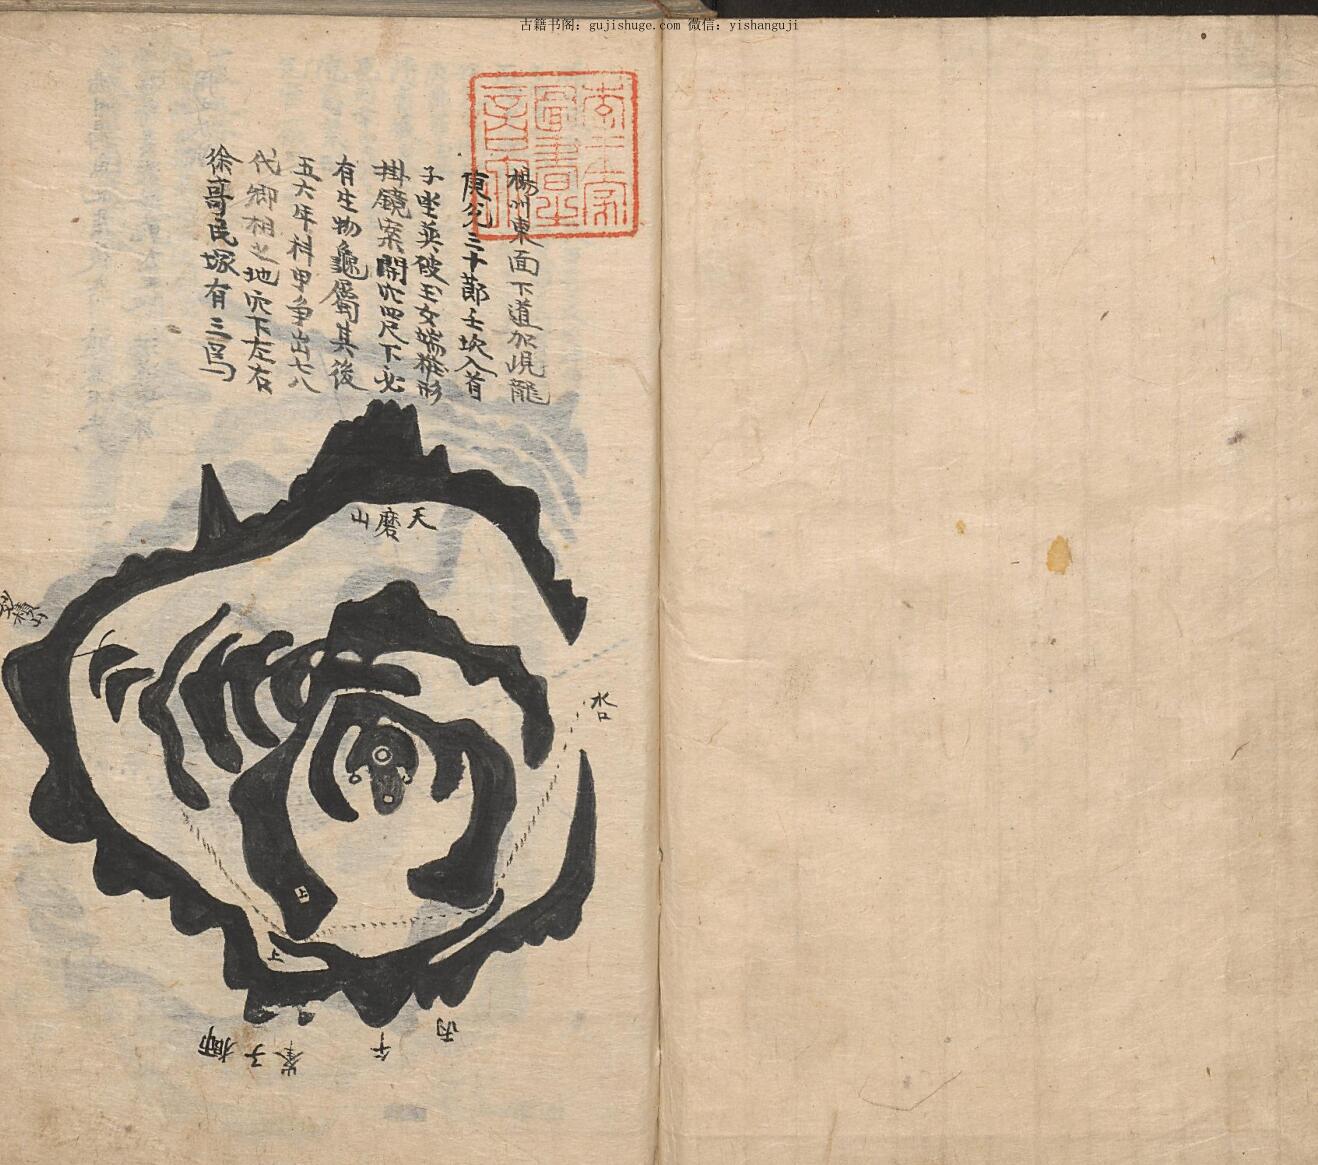 古籍书阁：gujishuge.com 微信：yishanguji
楊州東面下道加峴龍
庚兌三十節壬坎入首
子坐葬破玉女端粧形
掛鏡案開穴四尺下必
有生物龜屬其後
五六年科甲爭出七八
代卿相之地穴下左右
徐哥民塚有三焉
天磨山
水口
丙
午
獅子峯